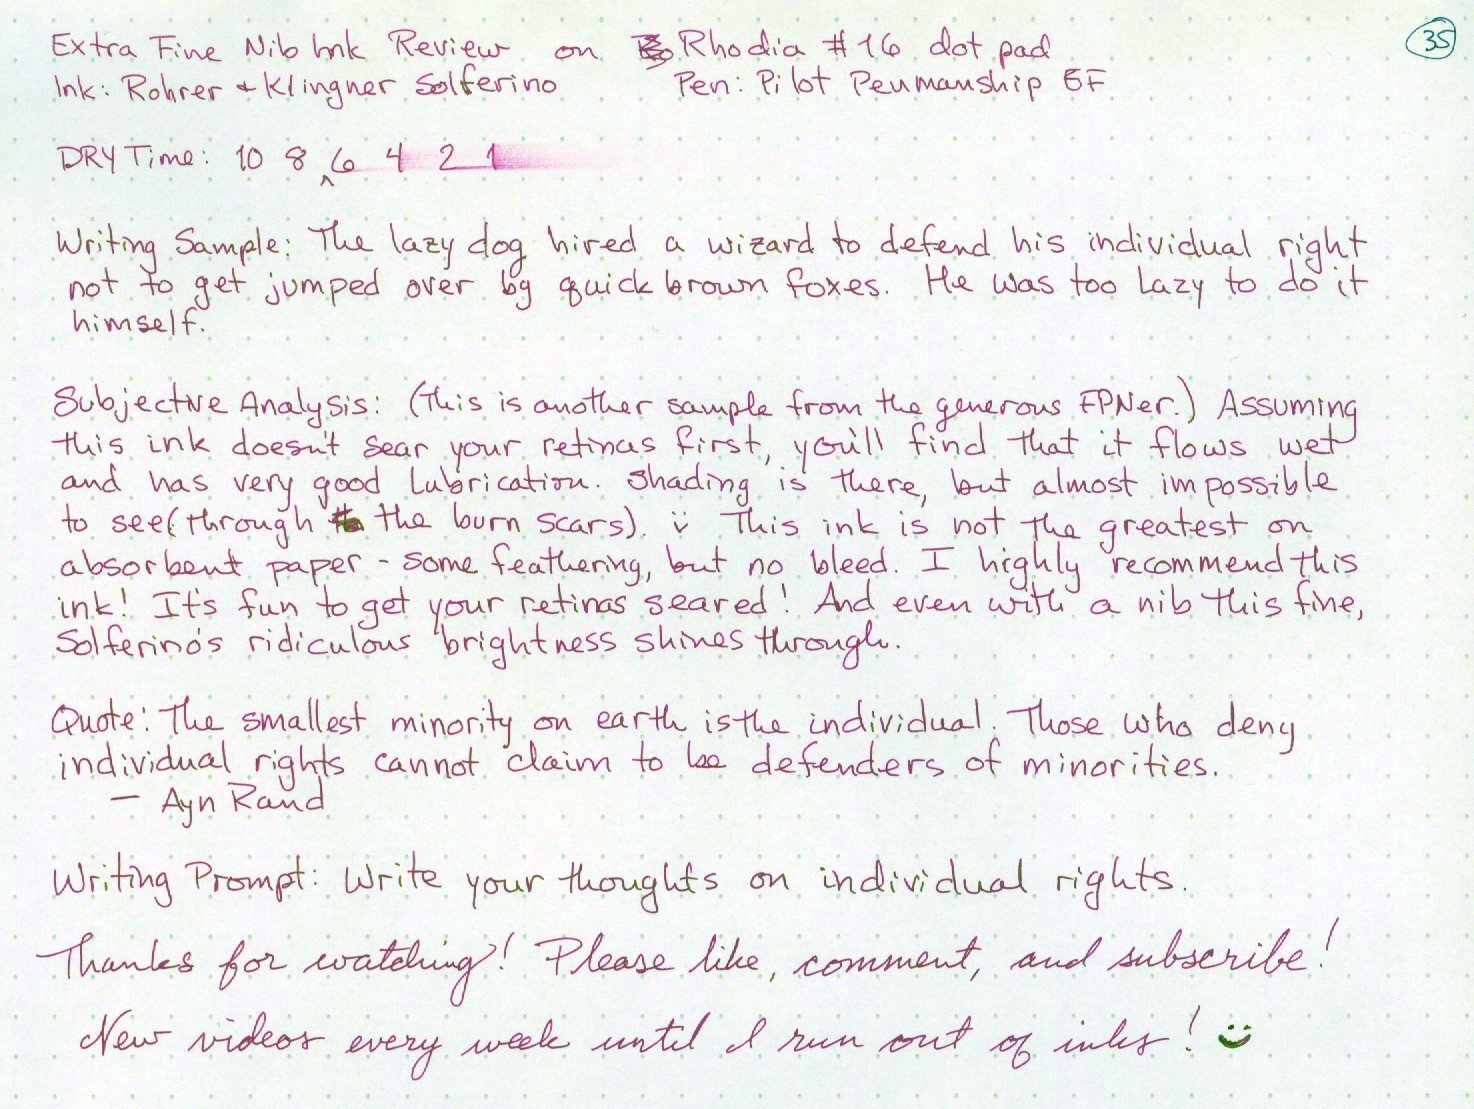 Extra Fine Nib Ink Review on Rhodia #16 dot pad
35
Ink: Rohrer & Klingner Solferino Pen: Pilot Penmanship EF
DRY Time: 10 8 6 4 2 1
^
Writing Sample: The lazy dog hired a wizard to defend his individual right
not to get jumped over by quick brown foxes. He was too lazy to do it
himself.
Subjective Analysis: (This is another sample from the generous FPNer.) Assuming
this ink doesn't sear your retinas first, you'll find that it flows wet
and has very good lubrication. Shading is there, but almost impossible
to see (through the burn scars). :) This ink is not the greatest on
absorbent paper - some feathering, but no bleed. I highly recommend this
ink! It's fun to get your retinas seared! And even with a nib this fine,
Solferino's ridiculous brightness shines through.
Quote: The smallest minority on earth is the individual. Those who deny
individual rights cannot claim to be defenders of minorities.
— Ayn Rand
Writing Prompt: Write your thoughts on individual rights.
Thanks for watching! Please like, comment, and subscribe!
New videos every week until I run out of inks! :)